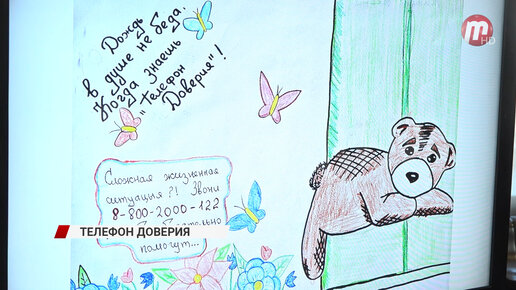 Дождь
в душе не беда.
Когда знаешь
"Телефон
Доверия"!
Сложная жизненная
ситуация?! Звони
8-800-2000-122
помогут...
ТЕЛЕФОН ДОВЕРИЯ
m HD